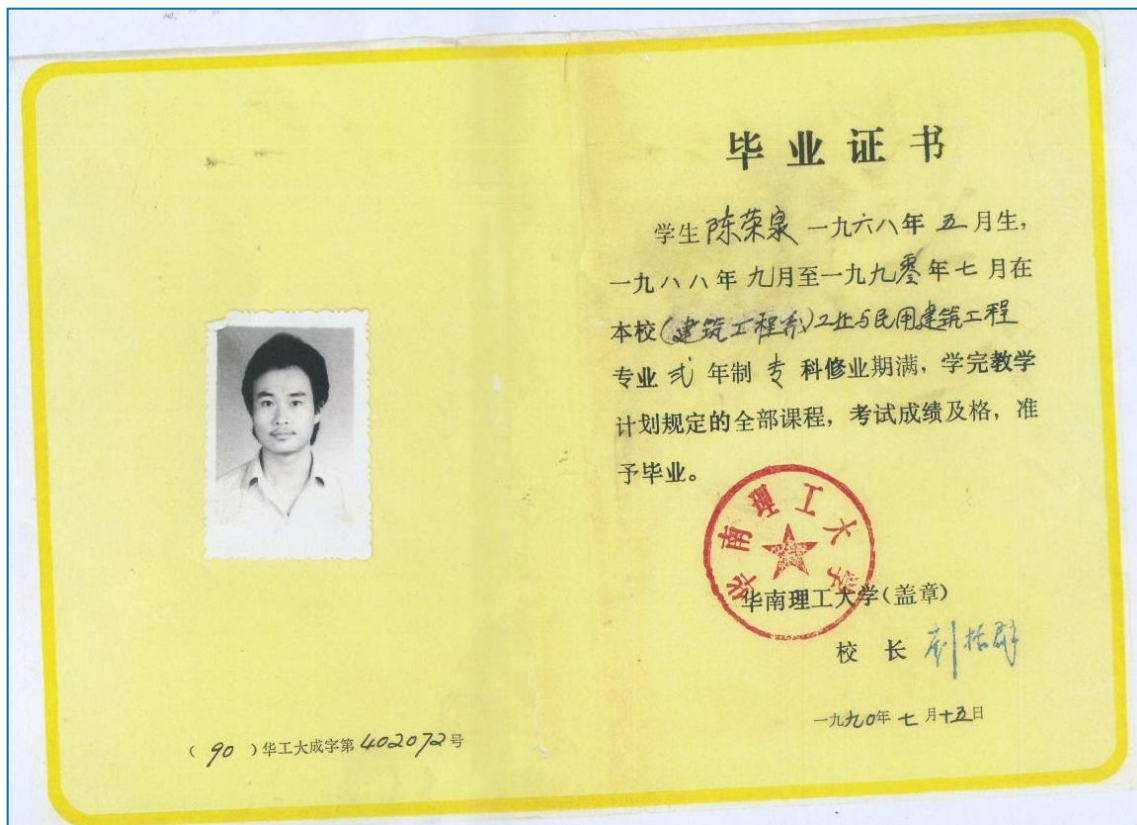 毕业证书
学生陈荣泉一九六八年五月生，
一九八八年九月至一九九零年七月在
本校(建筑工程系)工业与民用建筑工程
专业弍年制专科修业期满，学完教学
计划规定的全部课程，考试成绩及格，准
予毕业。
华南理工大学
华南理工大学(盖章)
校长 刘振群
一九九0年七月十五日
(90)华工大成字第402072号